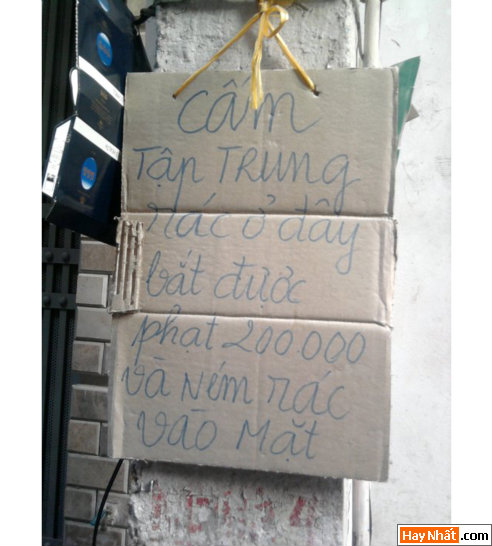 cấm
Tập TRUNG
rác ở đây
bắt được
phạt 200.000
và Ném rác
vào Mặt
HayNhất.com